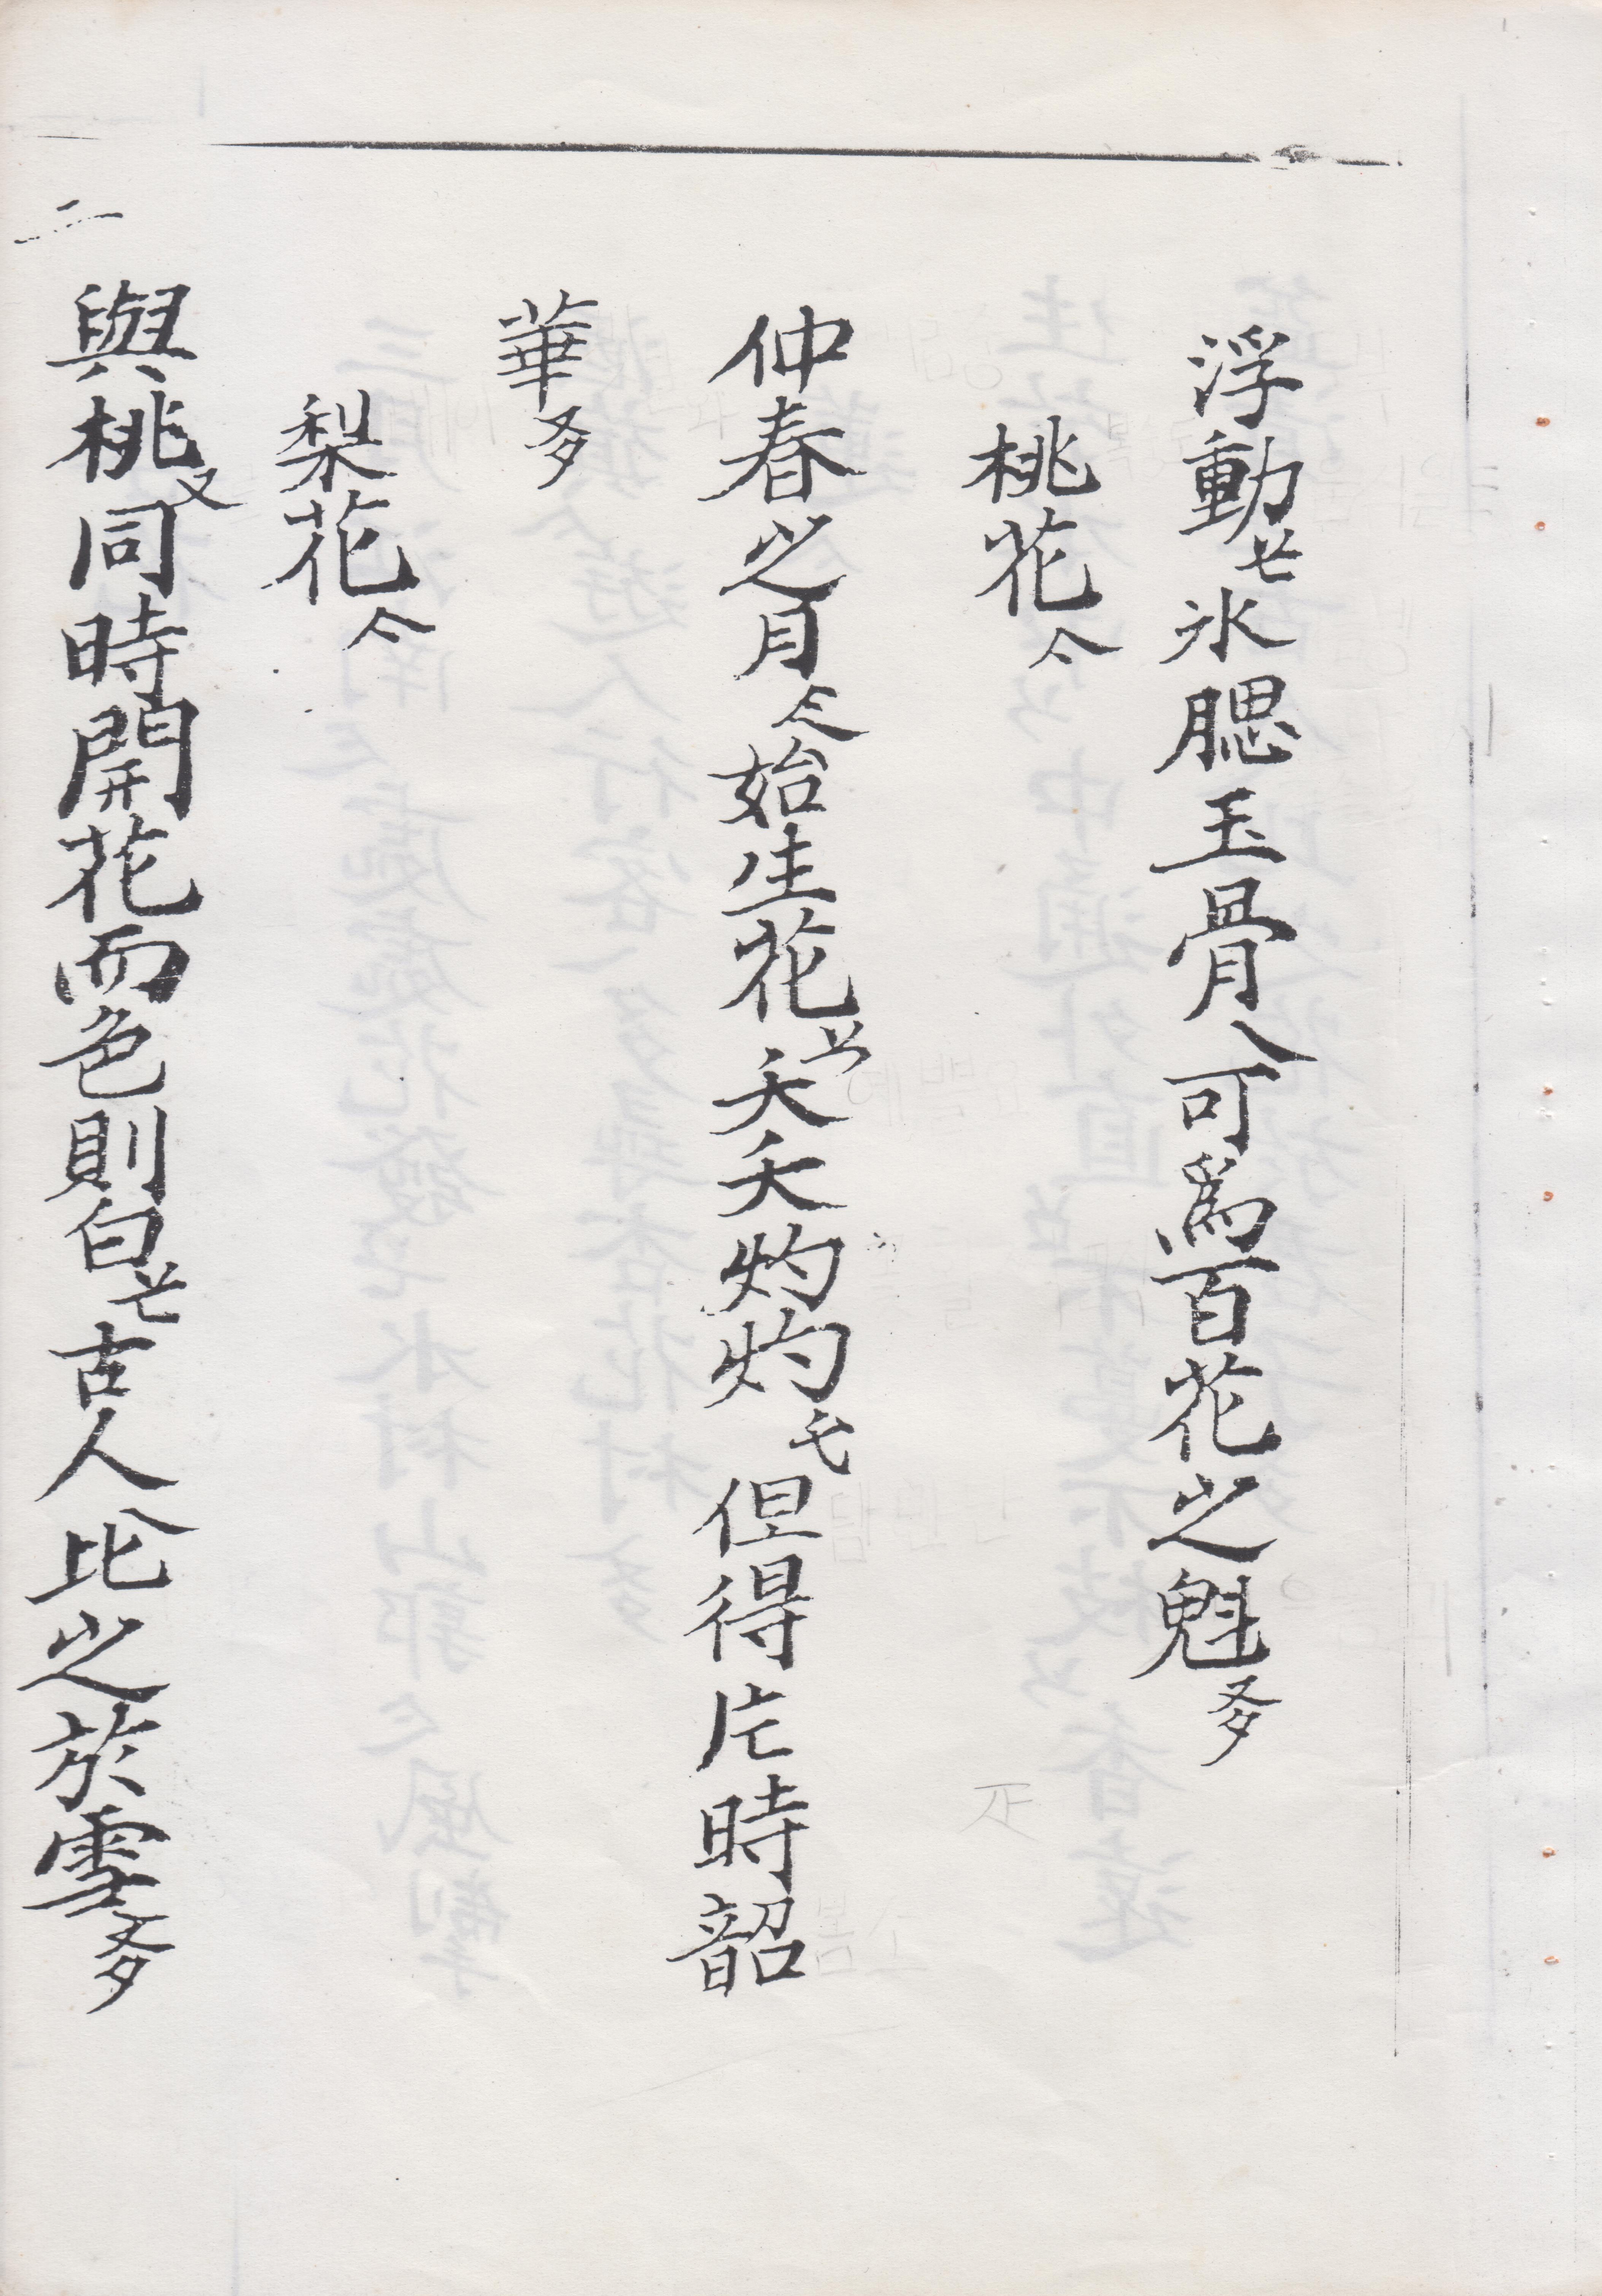 浮動氷腮玉骨可爲百花之魁夛
桃花亽
仲春之月始生花夭夭灼灼但得片時韶
華夛
梨花亽
與桃又同時開花而色則白古人比之於雪夛